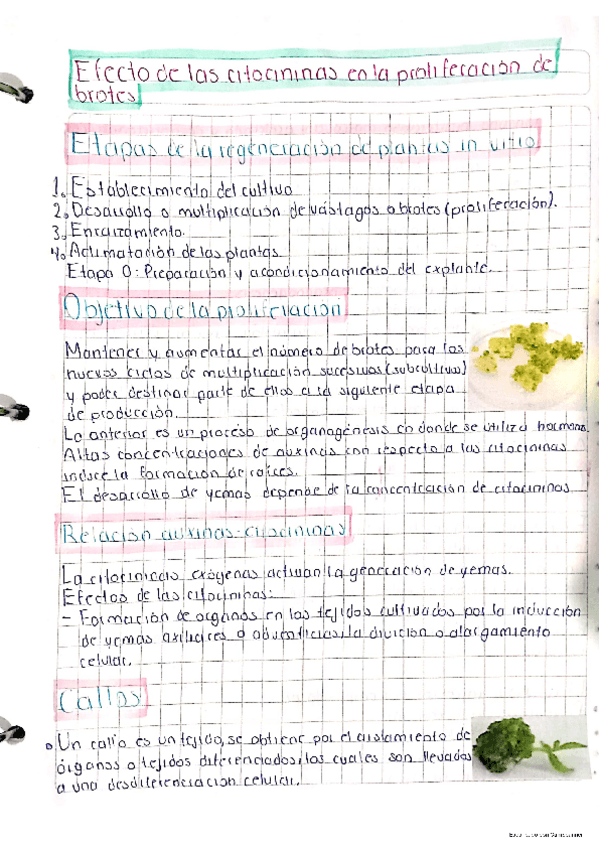 Efecto de las citocininas en la proliferación de
brotes
Etapas de la regeneración de plantas in vitro
1. Establecimiento del cultivo
2. Desarrollo o multiplicación de vástagos o brotes (proliferación).
3. Enraizamiento.
4. Aclimatación de las plantas
Etapa 0: Preparación y acondicionamiento del explante.
Objetivo de la proliferación
Mantener y aumentar el número de brotes para los
nuevos ciclos de multiplicación sucesivas (subcultivos)
y poder destinar parte de ellos a la siguiente etapa
de producción.
Lo anterior es un proceso de organogénesis en donde se utiliza hormona.
Altas concentraciones de auxinas con respecto a las citocininas
induce la formación de raíces.
El desarrollo de yemas depende de la concentración de citocininas
Relación auxinas-citocininas
La citocininas exógenas activan la generación de yemas.
Efectos de las citocininas:
- Formación de organos en los tejidos cultivados por la inducción
de yemas axilares o adventicias, la división o alargamiento
celular.
Callos
Un callo es un tejido, se obtiene por el aislamiento de
órganos o tejidos diferenciados, los cuales son llevados
a una desdiferenciación celular.